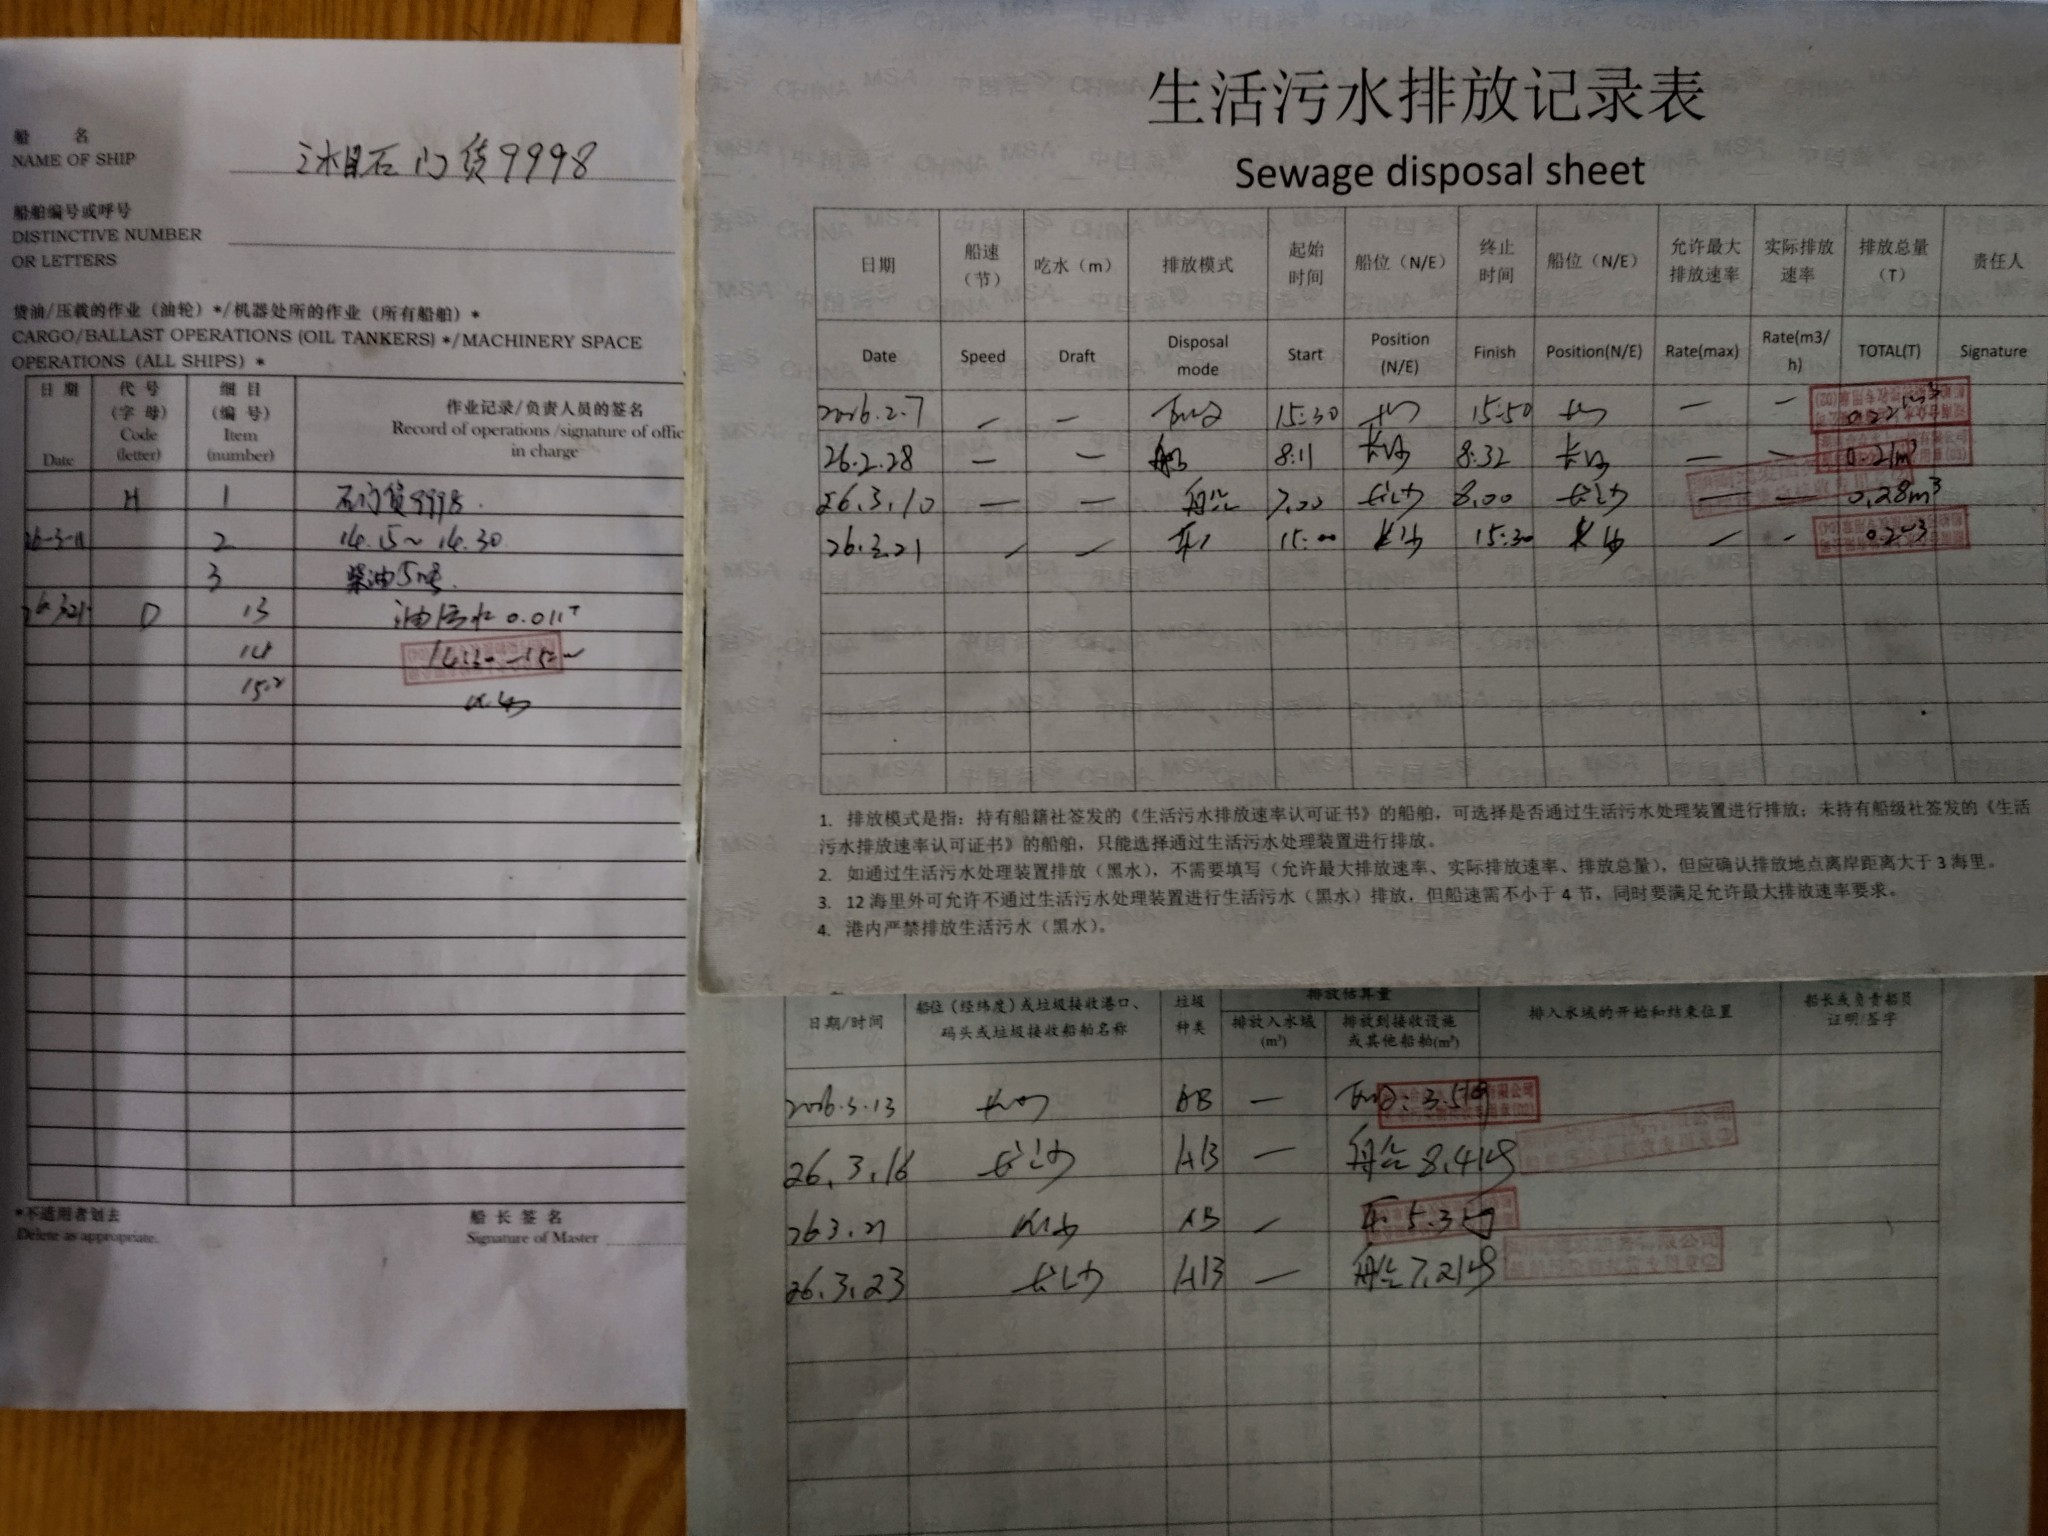 船 名
NAME OF SHIP
石门货9998
船舶编号或呼号
DISTINCTIVE NUMBER
OR LETTERS
货油/压载的作业（油轮）*/机器处所的作业（所有船舶）*
CARGO/BALLAST OPERATIONS (OIL TANKERS) */MACHINERY SPACE
OPERATIONS (ALL SHIPS) *
日 期 代 号 细 目
（字 母） （编 号） 作业记录/负责人员的签名
Code Item Record of operations /signature of offic
Date (letter) (number) in charge
H 1 石门货9998.
26-3-11 2 14.15~14.30
3 柴油5吨.
26.3.21 D 13 油污水 0.011T
14
15.2 长沙
*不适用者划去
Delete as appropriate.
船 长 签 名
Signature of Master
生活污水排放记录表
Sewage disposal sheet
日期 船速（节） 吃水（m） 排放模式 起始时间 船位（N/E） 终止时间 船位（N/E） 允许最大排放速率 实际排放速率 排放总量（T） 责任人
Date Speed Draft Disposal mode Start Position (N/E) Finish Position(N/E) Rate(max) Rate(m3/h) TOTAL(T) Signature
2026.2.7 — — 15:30 长沙 15:50 长沙 — —
26.2.28 — — 船 8:11 长沙 8:32 长沙 — — 0.21m³
26.3.10 — — 船公 7.00 长沙 8.00 长沙 — — 0.28m³
26.3.21 — — 车 15:00 长沙 15:30 长沙 — —
1. 排放模式是指：持有船籍社签发的《生活污水排放速率认可证书》的船舶，可选择是否通过生活污水处理装置进行排放；未持有船级社签发的《生活
污水排放速率认可证书》的船舶，只能选择通过生活污水处理装置进行排放。
2. 如通过生活污水处理装置排放（黑水），不需要填写（允许最大排放速率、实际排放速率、排放总量），但应确认排放地点离岸距离大于 3 海里。
3. 12 海里外可允许不通过生活污水处理装置进行生活污水（黑水）排放，但船速需不小于 4 节，同时要满足允许最大排放速率要求。
4. 港内严禁排放生活污水（黑水）。
日期/时间 船位（经纬度）或垃圾接收港口、码头或垃圾接收船舶名称 垃圾种类 排放估算量 排入水域的开始和结束位置 船长或负责船员证明/签字
排放入水域(m³) 排放到接收设施或其他船舶(m³)
2026.3.13 长沙 AB —
26.3.16 长沙 AB — 船公 8.4kg
26.3.21 长沙 AB — 车
26.3.23 长沙 AB — 船公 7.2kg